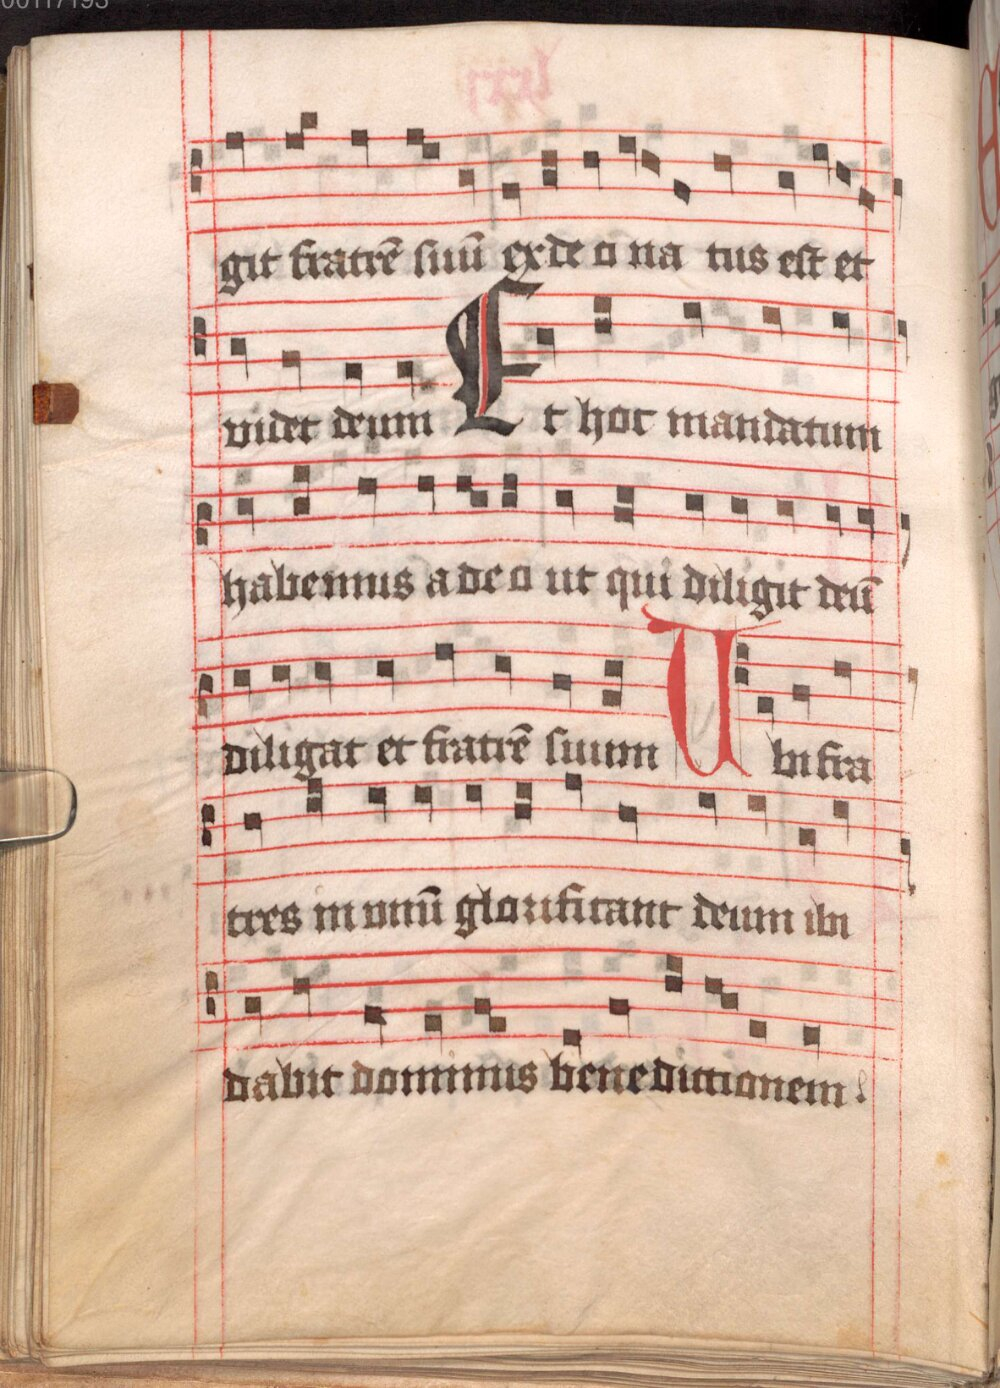 git fratrē suū ex deo natus est et
videt deum Et hoc mandatum
habemus a deo ut qui diligit deū
diligat et fratrē suum Ubi fra
tres in unū glorificant deum ibi
dabit dominus benedictionem